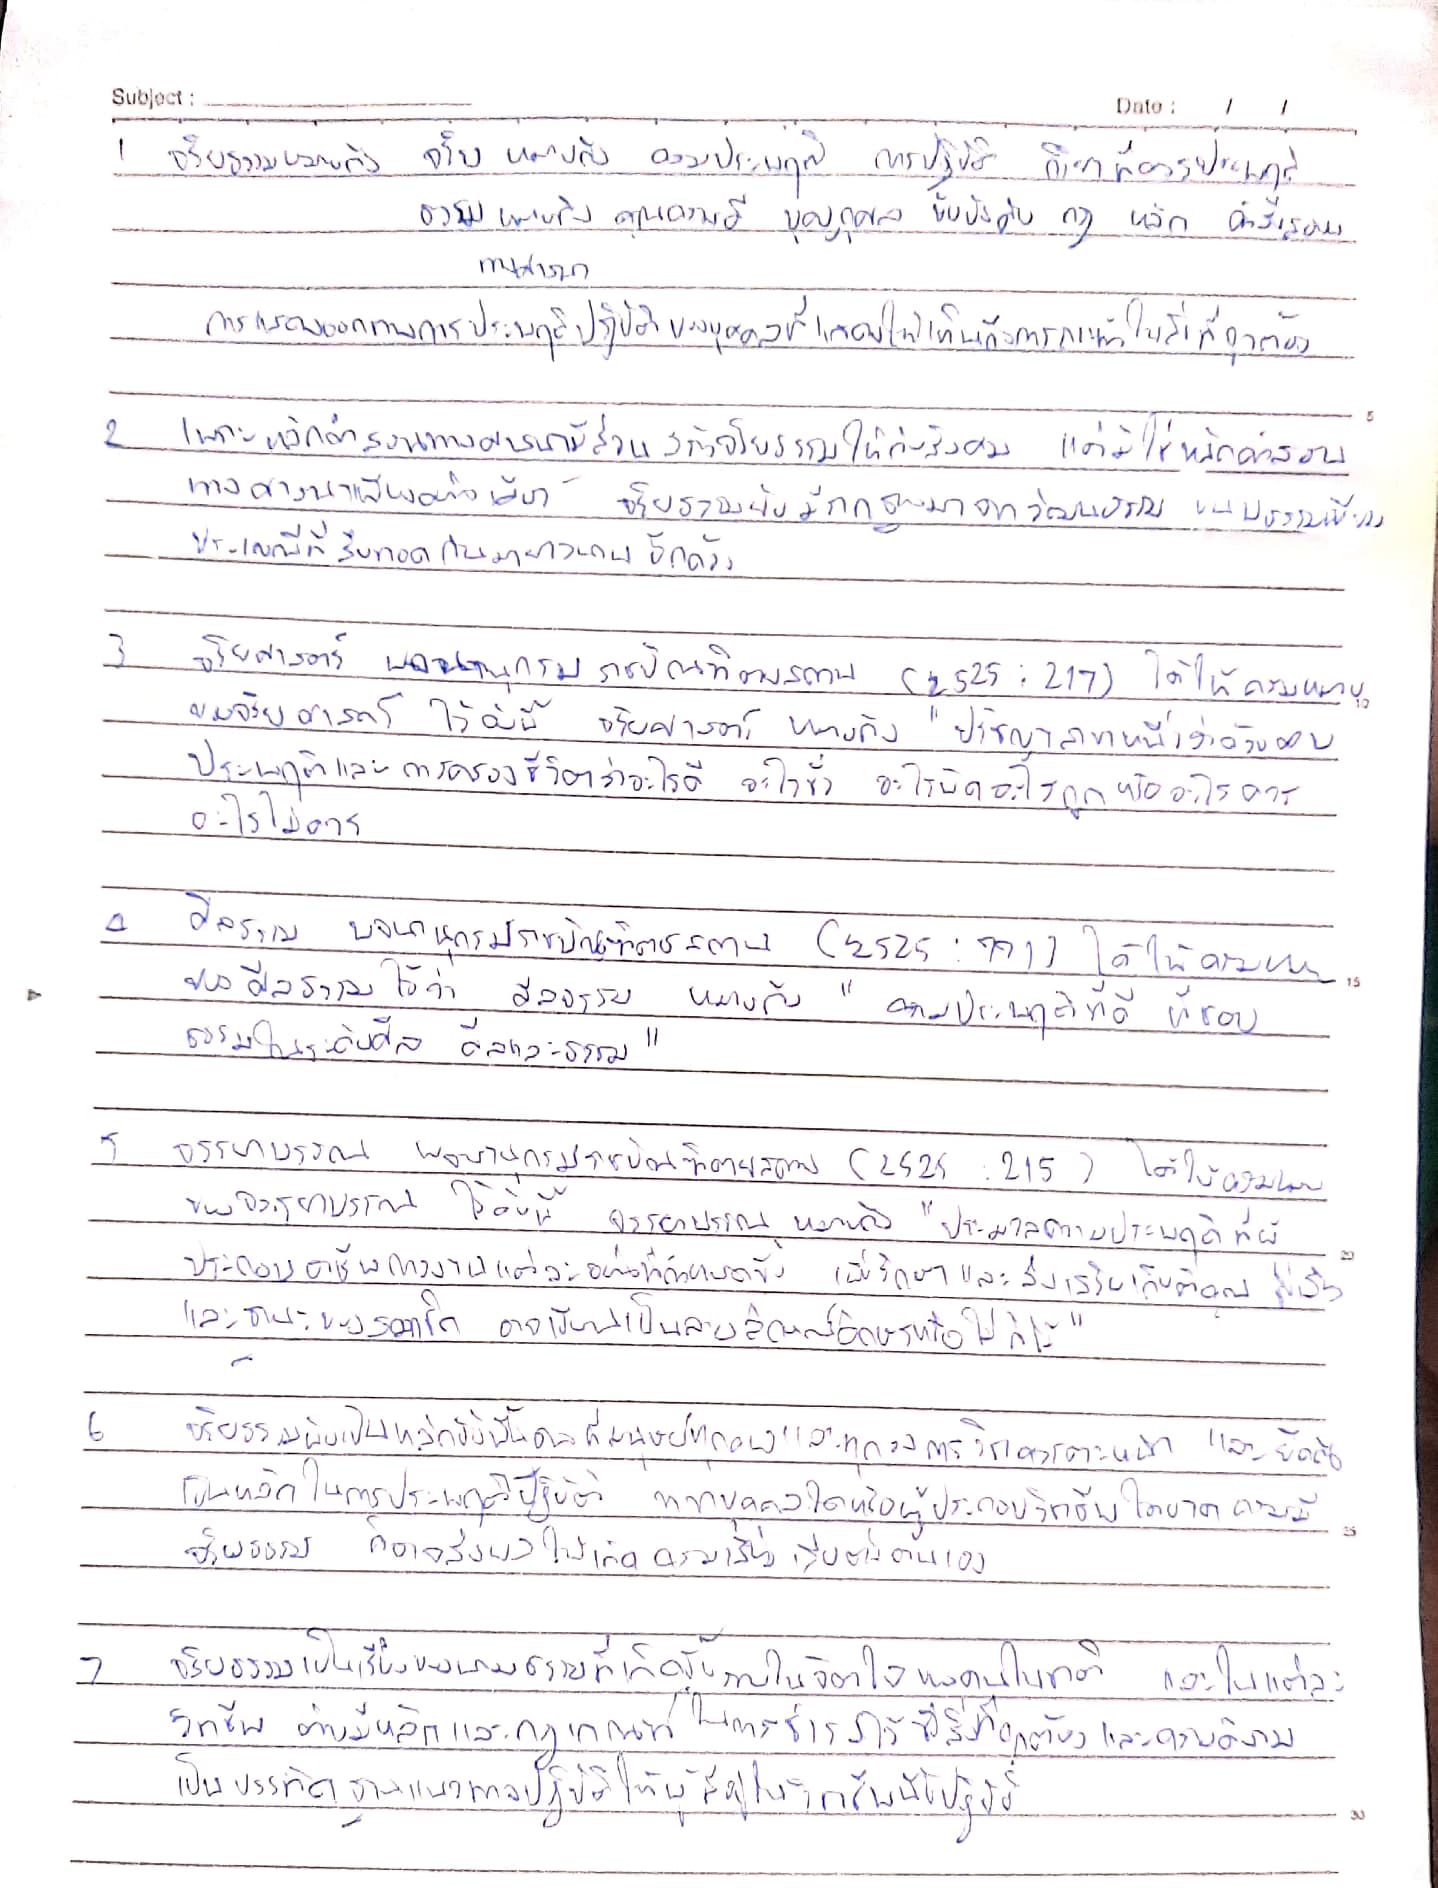 Subject :
Date : / /
1 จริยธรรมหมายถึง จริย หมายถึง ความประพฤติ การปฏิบัติ กิริยาที่ควรประพฤติ
ธรรม หมายถึง คุณความดี บุญกุศล ข้อบังคับ กฎ หลัก คำสั่งสอน
ทางศาสนา
การแสดงออกทางการประพฤติปฏิบัติ ของบุคคลที่แสดงให้เห็นถึงการกระทำในสิ่งที่ถูกต้อง
5
2 เพราะหลักคำสอนทางศาสนามีส่วน จริยธรรมให้กับสังคม แต่มิใช่หลักคำสอน
ทางศาสนาเพียงอย่างเดียว จริยธรรมยังมีรากฐานมาจากวัฒนธรรม ขนบธรรมเนียม
ประเพณีที่สืบทอดกันมายาวนานอีกด้วย
3 จริยศาสตร์ พจนานุกรม ราชบัณฑิตยสถาน (2525 : 217) ได้ให้ความหมาย
10
ของจริยศาสตร์ ไว้ดังนี้ จริยศาสตร์ หมายถึง "ปรัชญาสาขาหนึ่งว่าด้วยความ
ประพฤติและการครองชีวิตว่าอะไรดี อะไรชั่ว อะไรผิดอะไรถูก หรืออะไรควร
อะไรไม่ควร
4 ศีลธรรม พจนานุกรมราชบัณฑิตยสถาน (2525 : 771) ได้ให้ความหมาย
15
ของศีลธรรมไว้ว่า ศีลธรรม หมายถึง " ความประพฤติที่ดี ที่ชอบ
ธรรมในระดับศีล ศีลและธรรม"
5 จรรยาบรรณ พจนานุกรมราชบัณฑิตยสถาน (2525 : 215) ได้ให้ความหมาย
ของจรรยาบรรณ ไว้ดังนี้ จรรยาบรรณ หมายถึง "ประมวลความประพฤติที่ผู้
20
ประกอบอาชีพการงานแต่ละอย่างกำหนดขึ้น เพื่อรักษาและส่งเสริมเกียรติคุณ ชื่อเสียง
และฐานะของสมาชิก อาจเขียนเป็นลายลักษณ์อักษรหรือไม่ก็ได้"
6 จริยธรรมนับเป็นหลักที่มนุษย์ทุกคนและทุกวงการวิชาควรตระหนัก และยึดถือ
เป็นหลักในการประพฤติปฏิบัติ หากบุคคลใดหรือผู้ประกอบวิชาชีพใดขาดความมี
25
จริยธรรม ก็อาจส่งผลให้เกิดความเสื่อมเสียต่อตนเอง
7 จริยธรรมเป็นเรื่องของนามธรรมที่เกิดขึ้นภายในจิตใจของคนในชาติ และในแต่ละ
วิชาชีพ ต่างมีหลักและกฎเกณฑ์ ในการธำรงไว้ซึ่งสิ่งที่ถูกต้องและความดีงาม
เป็นบรรทัดฐานแนวทางปฏิบัติให้ผู้ที่อยู่ในวิชาชีพนี้ปฏิบัติ
30